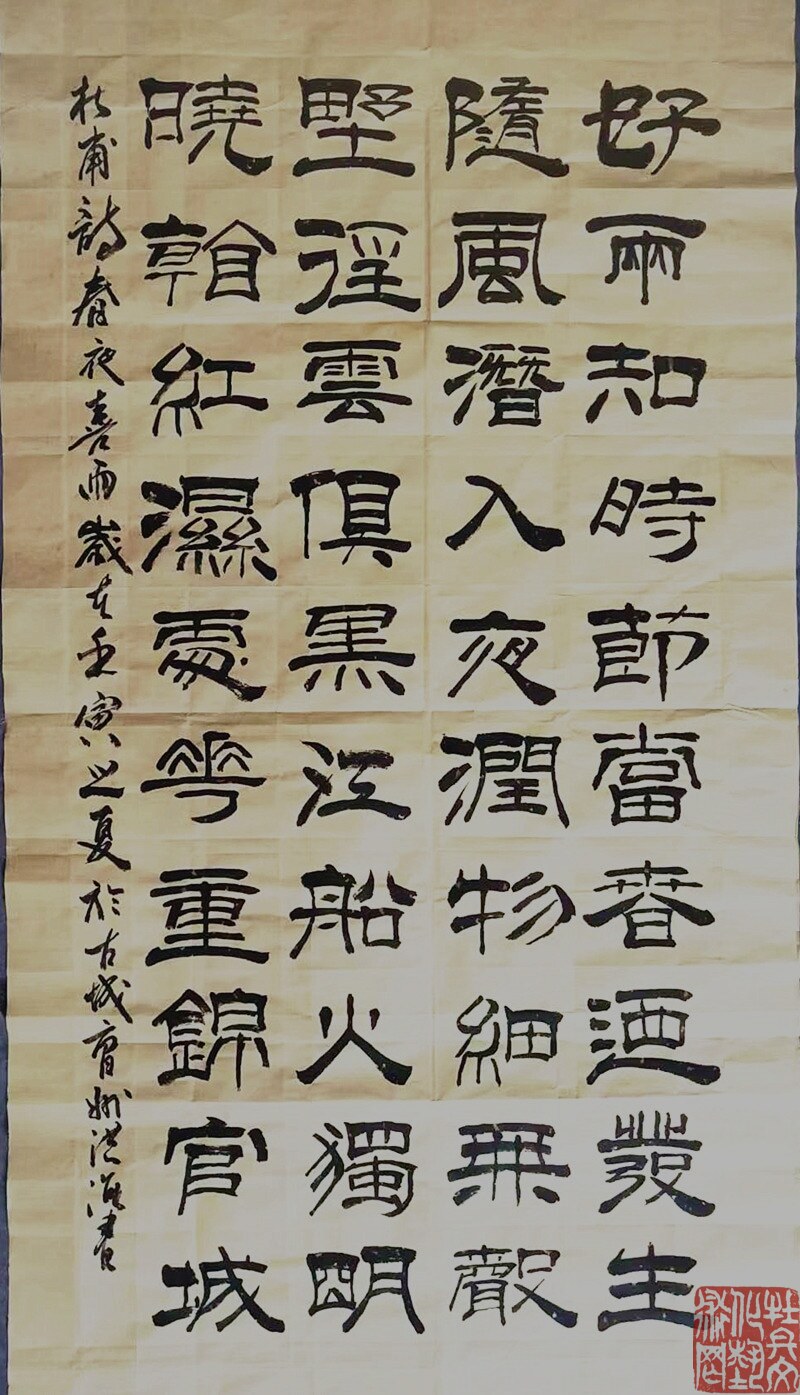 好雨知時節當春迺發生
隨風潛入夜潤物細無聲
野徑雲俱黑江船火獨明
曉看紅濕處花重錦官城
杜甫詩春夜喜雨歲在壬寅之夏於古城